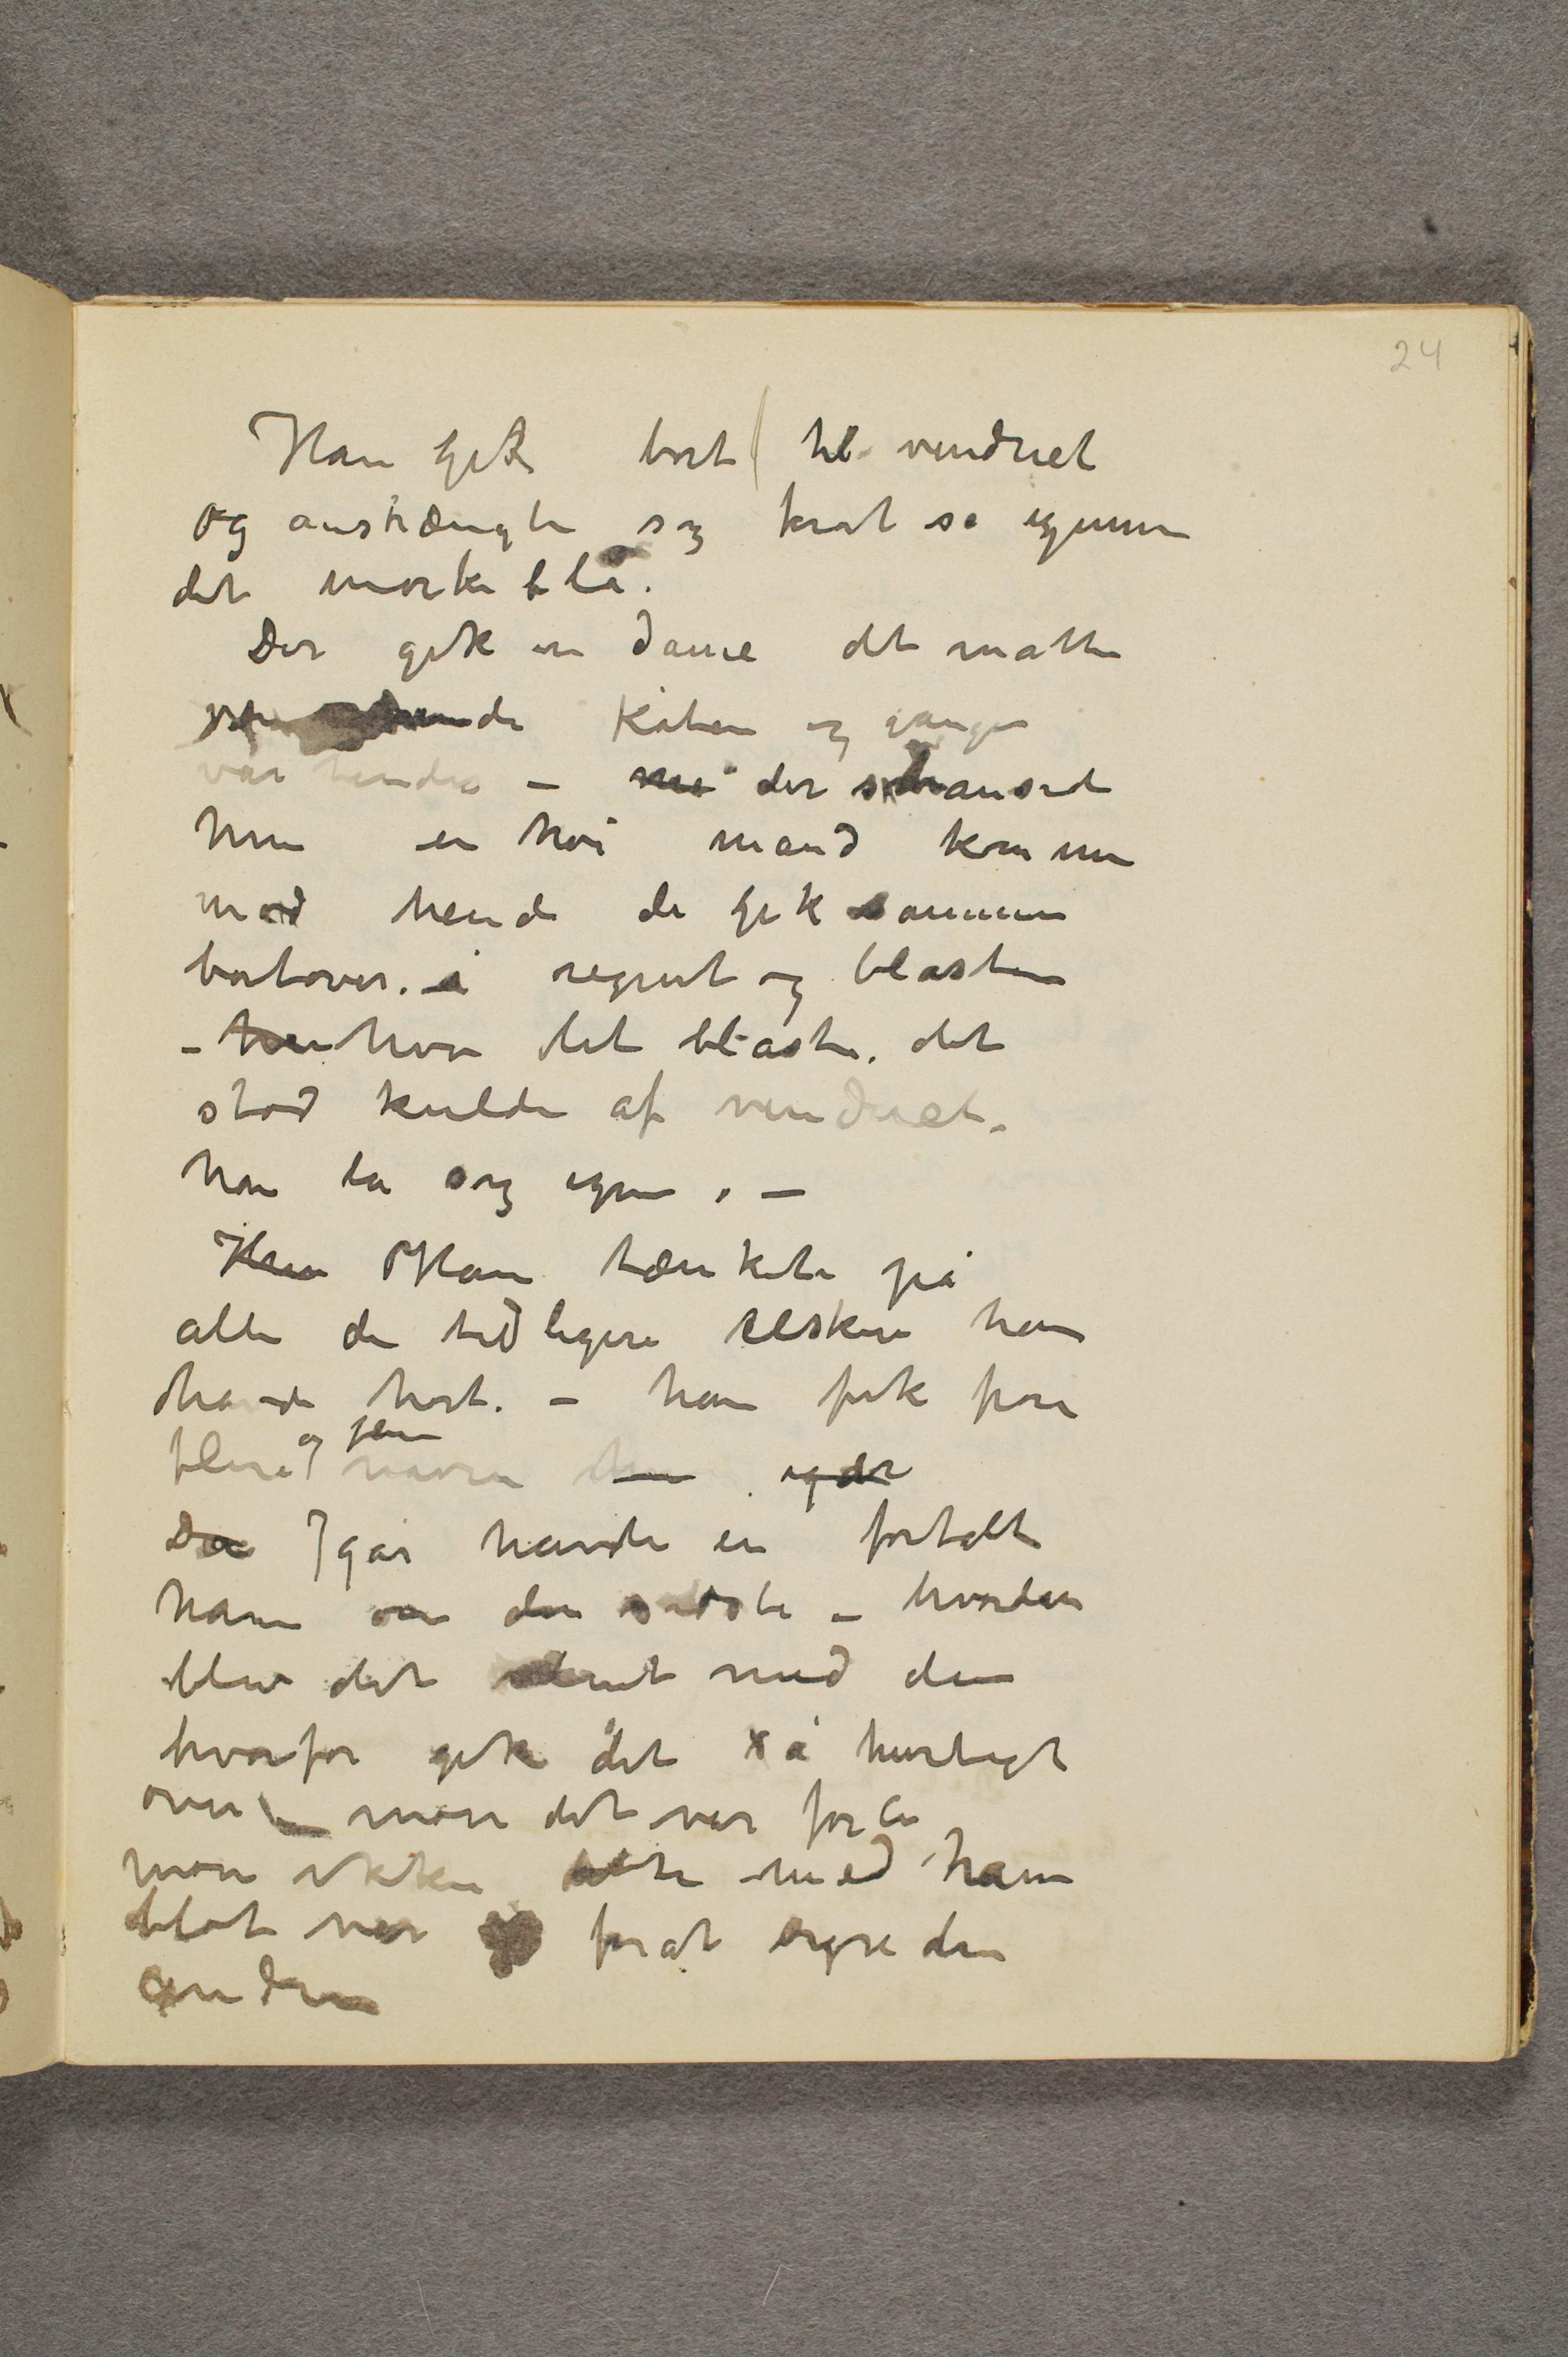 24
Han gik bort til vinduet
og anstrængte sig forat se igjennem
det mørkeblå.
Der gik en dame det måtte
hende Kåben og gangen
var hendes – der standset
hun en høi mand kommer
mod hende de gik sammen
bortover. i regnet og blåsten
– hvor det blåste. det
stod kulde af vinduet.
han la sig igjen. –
Han tænkte på
alle de tidligere elskere hun
havde havt. – han fik høre
flere og flere navne
Igår havde en fortalt
ham om den sidste – hvordan
blev det slut med den
hvorfor gik det så hurtigt
over – mon det var for li
mon ikke dette med ham
blot var forat ergre den
anden